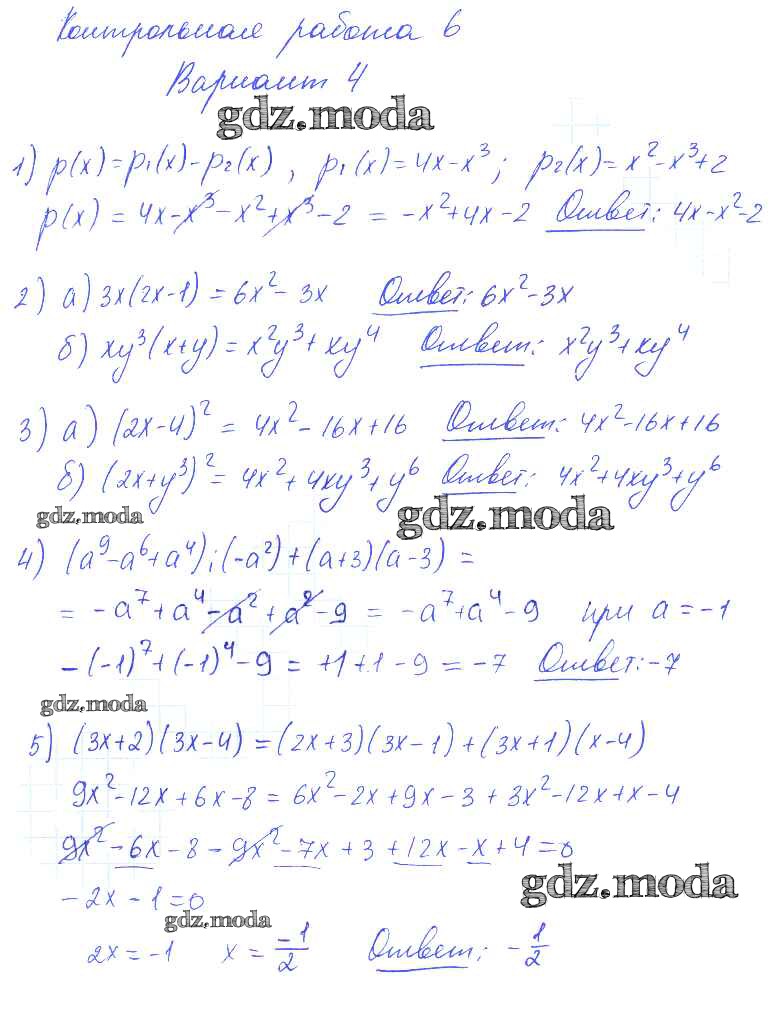 Контрольная работа 6
Вариант 4
gdz.moda
1) p(x) = p₁(x) - p₂(x) , p₁(x) = 4x - x³ ; p₂(x) = x² - x³ + 2
p(x) = 4x - x³ - x² + x³ - 2 = -x² + 4x - 2 Ответ: 4x - x² - 2
2) а) 3x(2x-1) = 6x² - 3x Ответ: 6x² - 3x
б) xy³(x+y) = x²y³ + xy⁴ Ответ: x²y³ + xy⁴
3) а) (2x-4)² = 4x² - 16x + 16 Ответ: 4x² - 16x + 16
б) (2x+y³)² = 4x² + 4xy³ + y⁶ Ответ: 4x² + 4xy³ + y⁶
gdz.moda gdz.moda
4) (a⁹ - a⁶ + a⁴) : (-a²) + (a+3)(a-3) =
= -a⁷ + a⁴ - a² + a² - 9 = -a⁷ + a⁴ - 9 при a = -1
-(-1)⁷ + (-1)⁴ - 9 = +1 + 1 - 9 = -7 Ответ: -7
gdz.moda
5) (3x+2)(3x-4) = (2x+3)(3x-1) + (3x+1)(x-4)
9x² - 12x + 6x - 8 = 6x² - 2x + 9x - 3 + 3x² - 12x + x - 4
9x² - 6x - 8 - 9x² - 7x + 3 + 12x - x + 4 = 0
gdz.moda
-2x - 1 = 0
gdz.moda
2x = -1 x = -1/2 Ответ: -1/2